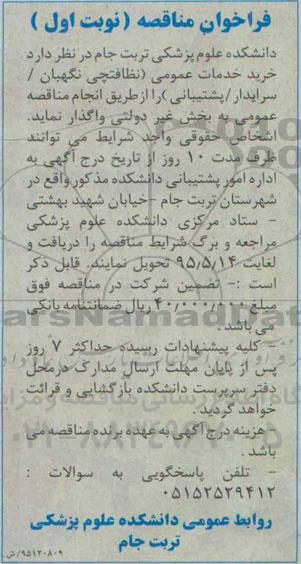 فراخوان مناقصه ( نوبت اول )
دانشکده علوم پزشکی تربت جام در نظر دارد
خرید خدمات عمومی (نظافتچی نگهبان /
سرایدار/پشتیبانی )را ازطریق انجام مناقصه
عمومی به بخش غیر دولتی واگذار نماید.
اشخاص حقوقی واجد شرایط می توانند
ظرف مدت ۱۰ روز از تاریخ درج آگهی به
اداره امور پشتیبانی دانشکده مذکور واقع در
شهرستان تربت جام -خیابان شهید بهشتی
- ستاد مرکزی دانشکده علوم پزشکی
مراجعه و برگ شرایط مناقصه را دریافت و
لغایت ۹۵/۵/۱۴ تحویل نمایند. قابل ذکر
است :- تضمین شرکت در مناقصه فوق
مبلغ ۴۰/۰۰۰/۰۰۰ ریال ضمانتنامه بانکی
می باشد .
- کلیه پیشنهادات رسیده حداکثر ۷ روز
پس از پایان مهلت ارسال مدارک درمحل
دفتر سرپرست دانشکده بازگشایی و قرائت
خواهد گردید .
-هزینه درج آگهی به عهده برنده مناقصه می
باشد .
- تلفن پاسخگویی به سوالات :
۰۵۱۵۲۵۲۹۴۱۲
روابط عمومی دانشکده علوم پزشکی
تربت جام
۹۵۱۲۰۸۰۹/ش